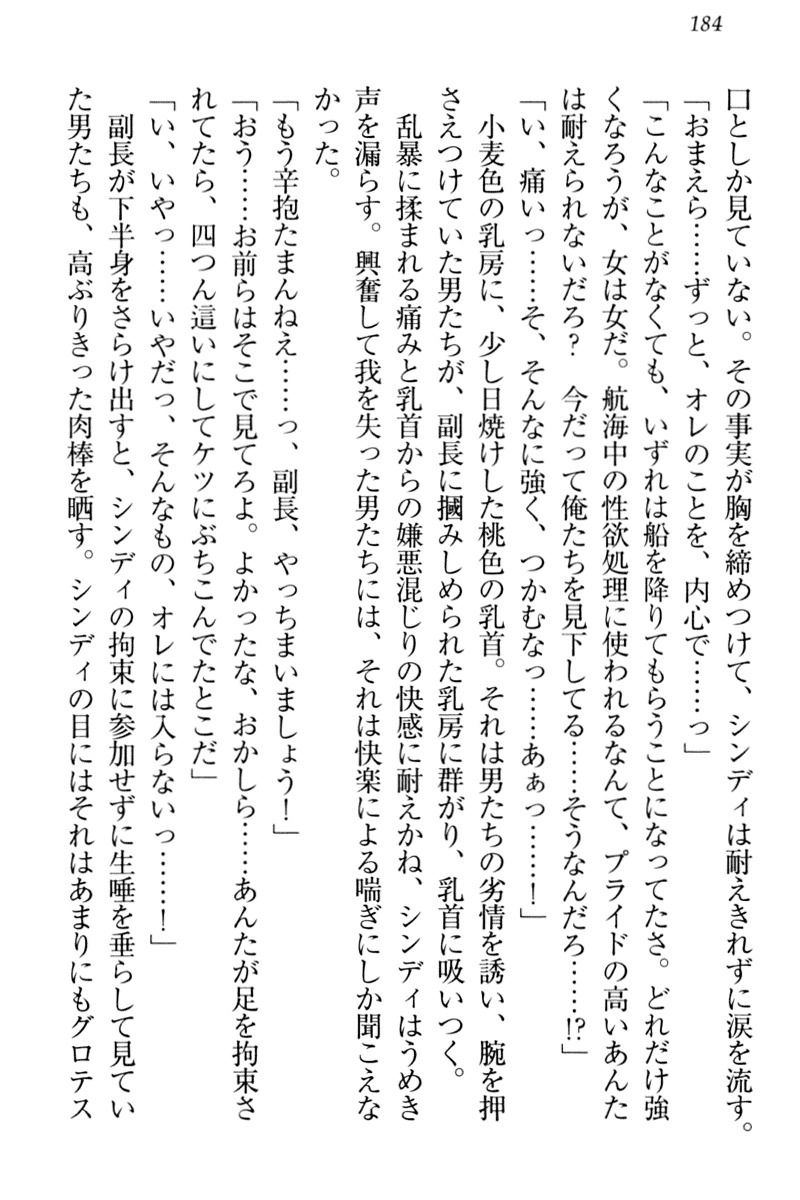 184
口としか見ていない。その事実が胸を締めつけて、シンディは耐えきれずに涙を流す。
「おまえら……ずっと、オレのことを、内心で……っ」
「こんなことがなくても、いずれは船を降りてもらうことになってたさ。どれだけ強
くなろうが、女は女だ。航海中の性欲処理に使われるなんて、プライドの高いあんた
は耐えられないだろ？　今だって俺たちを見下してる……そうなんだろ……!?」
「い、痛いっ……そ、そんなに強く、つかむなっ……あぁっ……！」
小麦色の乳房に、少し日焼けした桃色の乳首。それは男たちの劣情を誘い、腕を押
さえつけていた男たちが、副長に摑みしめられた乳房に群がり、乳首に吸いつく。
乱暴に揉まれる痛みと乳首からの嫌悪混じりの快感に耐えかね、シンディはうめき
声を漏らす。興奮して我を失った男たちには、それは快楽による喘ぎにしか聞こえな
かった。
「もう辛抱たまんねえ……っ、副長、やっちまいましょう！」
「おう……お前らはそこで見てろよ。よかったな、おかしら……あんたが足を拘束さ
れてたら、四つん這いにしてケツにぶちこんでたとこだ」
「い、いやっ……いやだっ、そんなもの、オレには入らないっ……！」
副長が下半身をさらけ出すと、シンディの拘束に参加せずに生唾を垂らして見てい
た男たちも、高ぶりきった肉棒を晒す。シンディの目にはそれはあまりにもグロテス